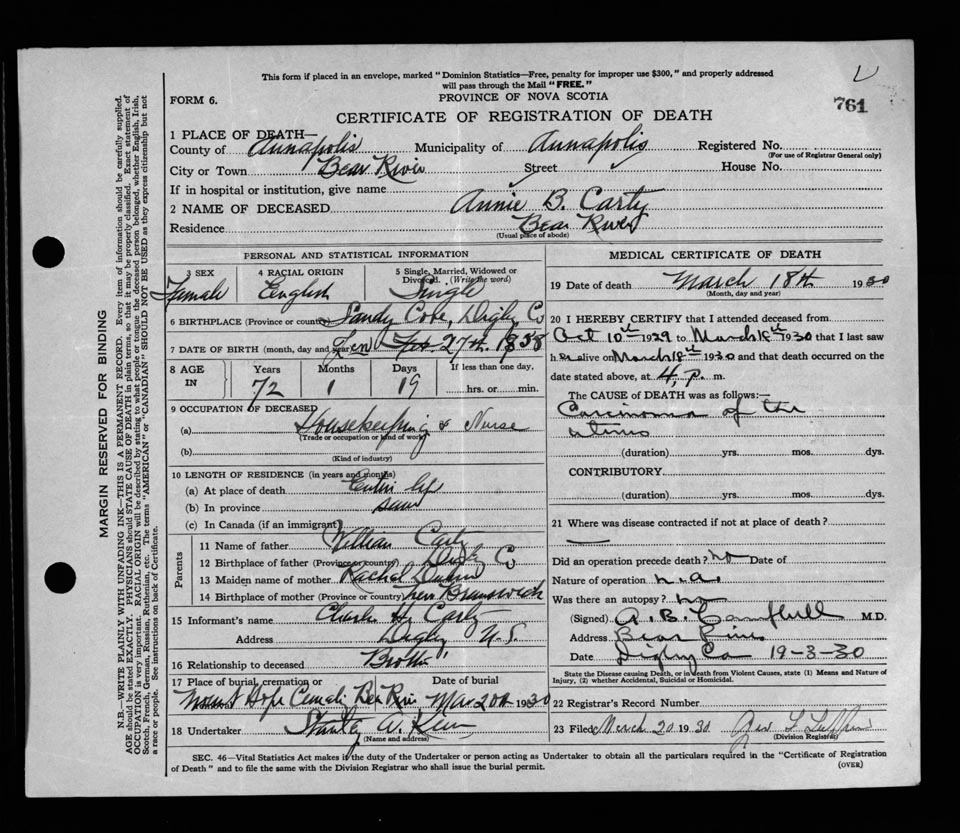 This form if placed in an envelope, marked "Dominion Statistics—Free, penalty for improper use $300," and properly addressed
will pass through the Mail "FREE."
PROVINCE OF NOVA SCOTIA
FORM 6.
761
CERTIFICATE OF REGISTRATION OF DEATH
1 PLACE OF DEATH—
County of Annapolis Municipality of Annapolis Registered No.
(For use of Registrar General only)
City or Town Bear River Street House No.
If in hospital or institution, give name
2 NAME OF DECEASED Annie B. Carty
Residence Bear River
(Usual place of abode)
PERSONAL AND STATISTICAL INFORMATION
3 SEX 4 RACIAL ORIGIN 5 Single, Married, Widowed or Divorced. (Write the word)
Female English Single
6 BIRTHPLACE (Province or country) Sandy Cove, Digby Co
7 DATE OF BIRTH (month, day and year) Jan 27th. 1858
8 AGE IN Years Months Days If less than one day,
72 1 19 hrs. or min.
9 OCCUPATION OF DECEASED
(a) Housekeeping & Nurse
(Trade or occupation or kind of work)
(b)
(Kind of industry)
10 LENGTH OF RESIDENCE (in years and months)
(a) At place of death Entire life
(b) In province same
(c) In Canada (if an immigrant)
Parents
11 Name of father William Carty
12 Birthplace of father (Province or country) Digby Co
13 Maiden name of mother Rachel
14 Birthplace of mother (Province or country) New Brunswick
15 Informant's name Charles H. Carty
Address Digby N.S.
16 Relationship to deceased Brother
17 Place of burial, cremation or Date of burial
Mount Hope Bear River Mar 20th 1930
18 Undertaker Stanley W.
(Name and address)
MEDICAL CERTIFICATE OF DEATH
19 Date of death March 18th 1930
(Month, day and year)
20 I HEREBY CERTIFY that I attended deceased from
Oct 10th 1929 to March 18th 1930 that I last saw
her alive on March 18th 1930 and that death occurred on the
date stated above, at 4, p. m.
The CAUSE of DEATH was as follows:—
Carcinoma of the
uterus
(duration) yrs. mos. dys.
CONTRIBUTORY
(duration) yrs. mos. dys.
21 Where was disease contracted if not at place of death?
Did an operation precede death? no Date of
Nature of operation n.a.
Was there an autopsy? no
(Signed) A. B. Campbell M.D.
Address Bear River
Date Digby Co 19-3-30
State the Disease causing Death, or in death from Violent Causes, state (1) Means and Nature of
Injury, (2) whether Accidental, Suicidal or Homicidal.
22 Registrar's Record Number
23 Filed March 20 1930
(Division Registrar)
SEC. 46—Vital Statistics Act makes it the duty of the Undertaker or person acting as Undertaker to obtain all the particulars required in the "Certificate of Registration
of Death" and to file the same with the Division Registrar who shall issue the burial permit.
(OVER)
MARGIN RESERVED FOR BINDING
N.B.—WRITE PLAINLY WITH UNFADING INK—THIS IS A PERMANENT RECORD. Every item of information should be carefully supplied.
AGE should be stated EXACTLY. PHYSICIANS should STATE CAUSE OF DEATH in plain terms, so that it may be properly classified. Exact statement of
OCCUPATION is very important. RACIAL ORIGIN will be described by stating to what people or tongue the deceased person belonged, whether English, Irish,
Scotch, French, German, Russian, Ruthenian, etc. The terms "AMERICAN" or "CANADIAN" SHOULD NOT BE USED as they express citizenship but not
a race or people. See instructions on back of Certificate.